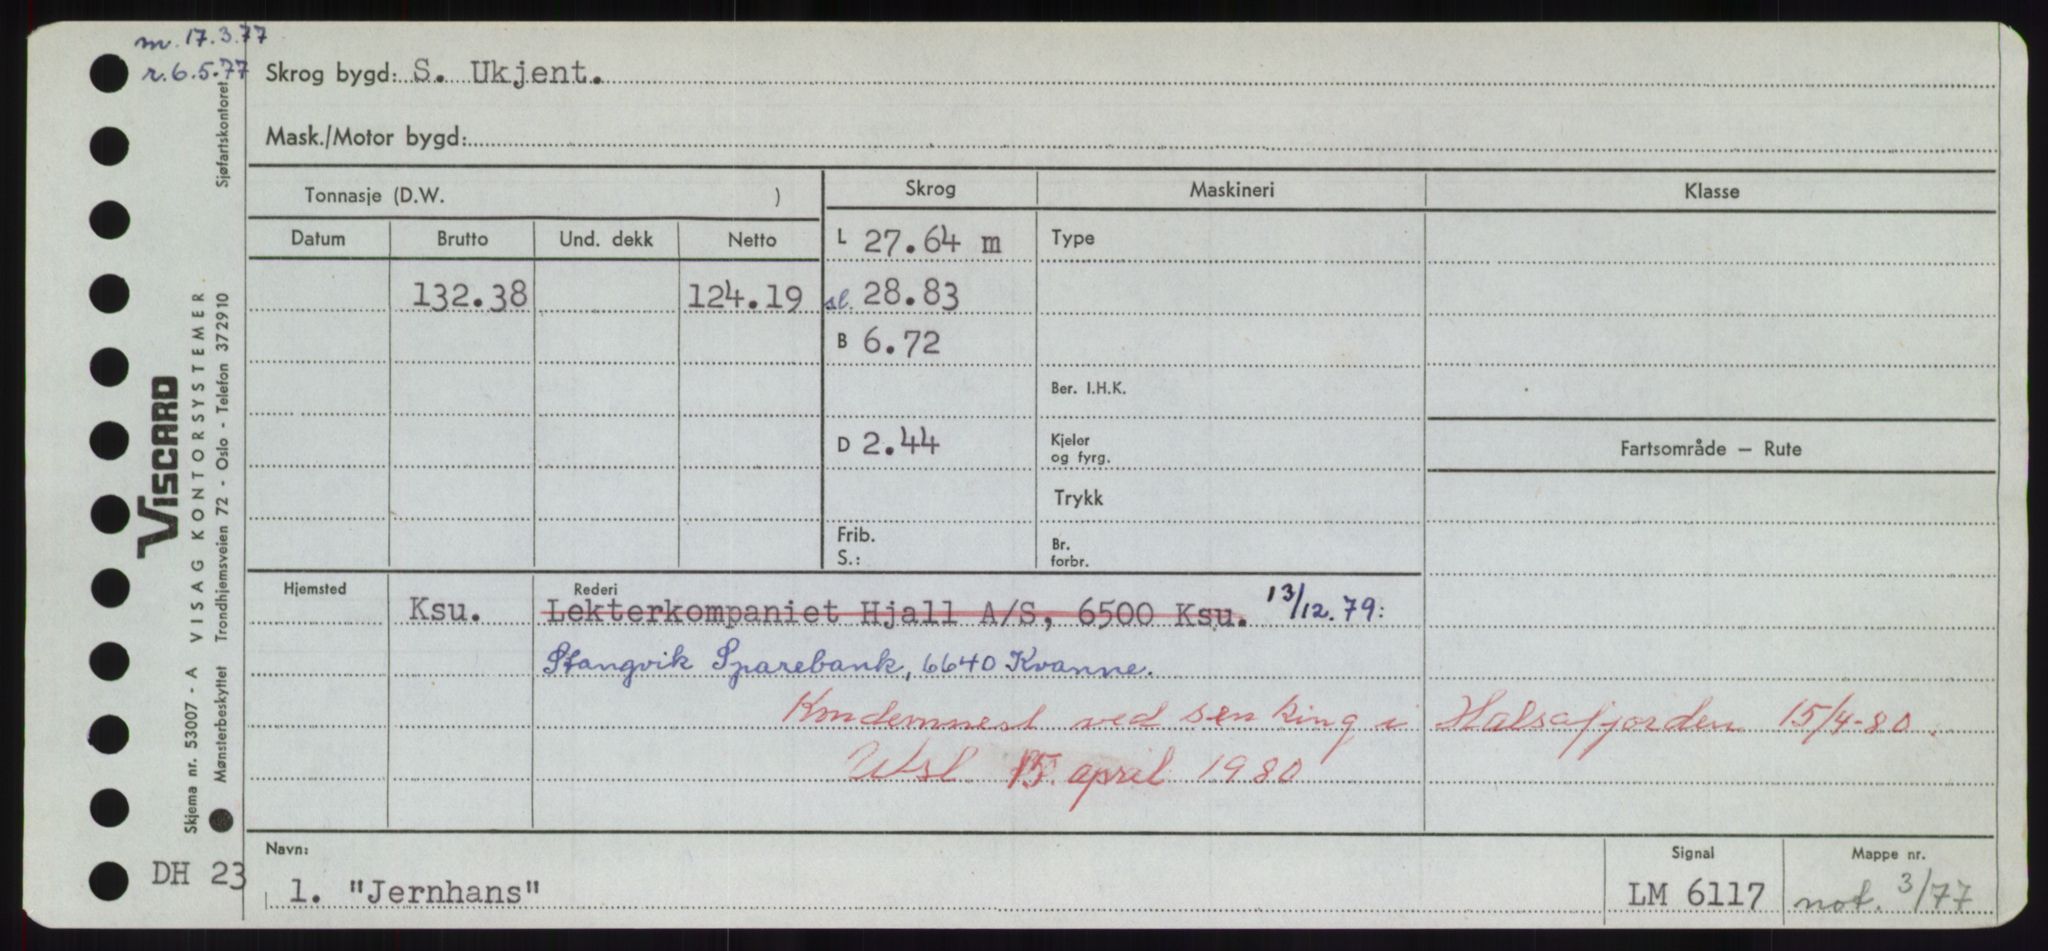 m. 17.3.77
r. 6.5.77
Skrog bygd: S. Ukjent.
Mask./Motor bygd:
Tonnasje (D.W. )
Skrog
Maskineri
Klasse
Datum
Brutto
Und. dekk
Netto
L 27.64 m
Type
132.38
124.19
sl. 28.83
B 6.72
Ber. I.H.K.
D 2.44
Kjeler
og fyrg.
Fartsområde — Rute
Trykk
Frib.
S.:
Br.
forbr.
Hjemsted
Rederi
Ksu.
Lekterkompaniet Hjall A/S, 6500 Ksu. 13/12.79:
Stangvik Sparebank, 6640 Kvanne.
Kondemnert ved senking i Halsafjorden 15/4-80.
Utsl. 15. april 1980
Navn:
Signal
Mappe nr.
DH 23
1. "Jernhans"
LM 6117
not. 3/77
Skjema nr. 53007 - A VISAG KONTORSYSTEMER
Mønsterbeskyttet Trondhjemsveien 72 - Oslo - Telefon 372910
Sjøfartskontoret
VISCARD